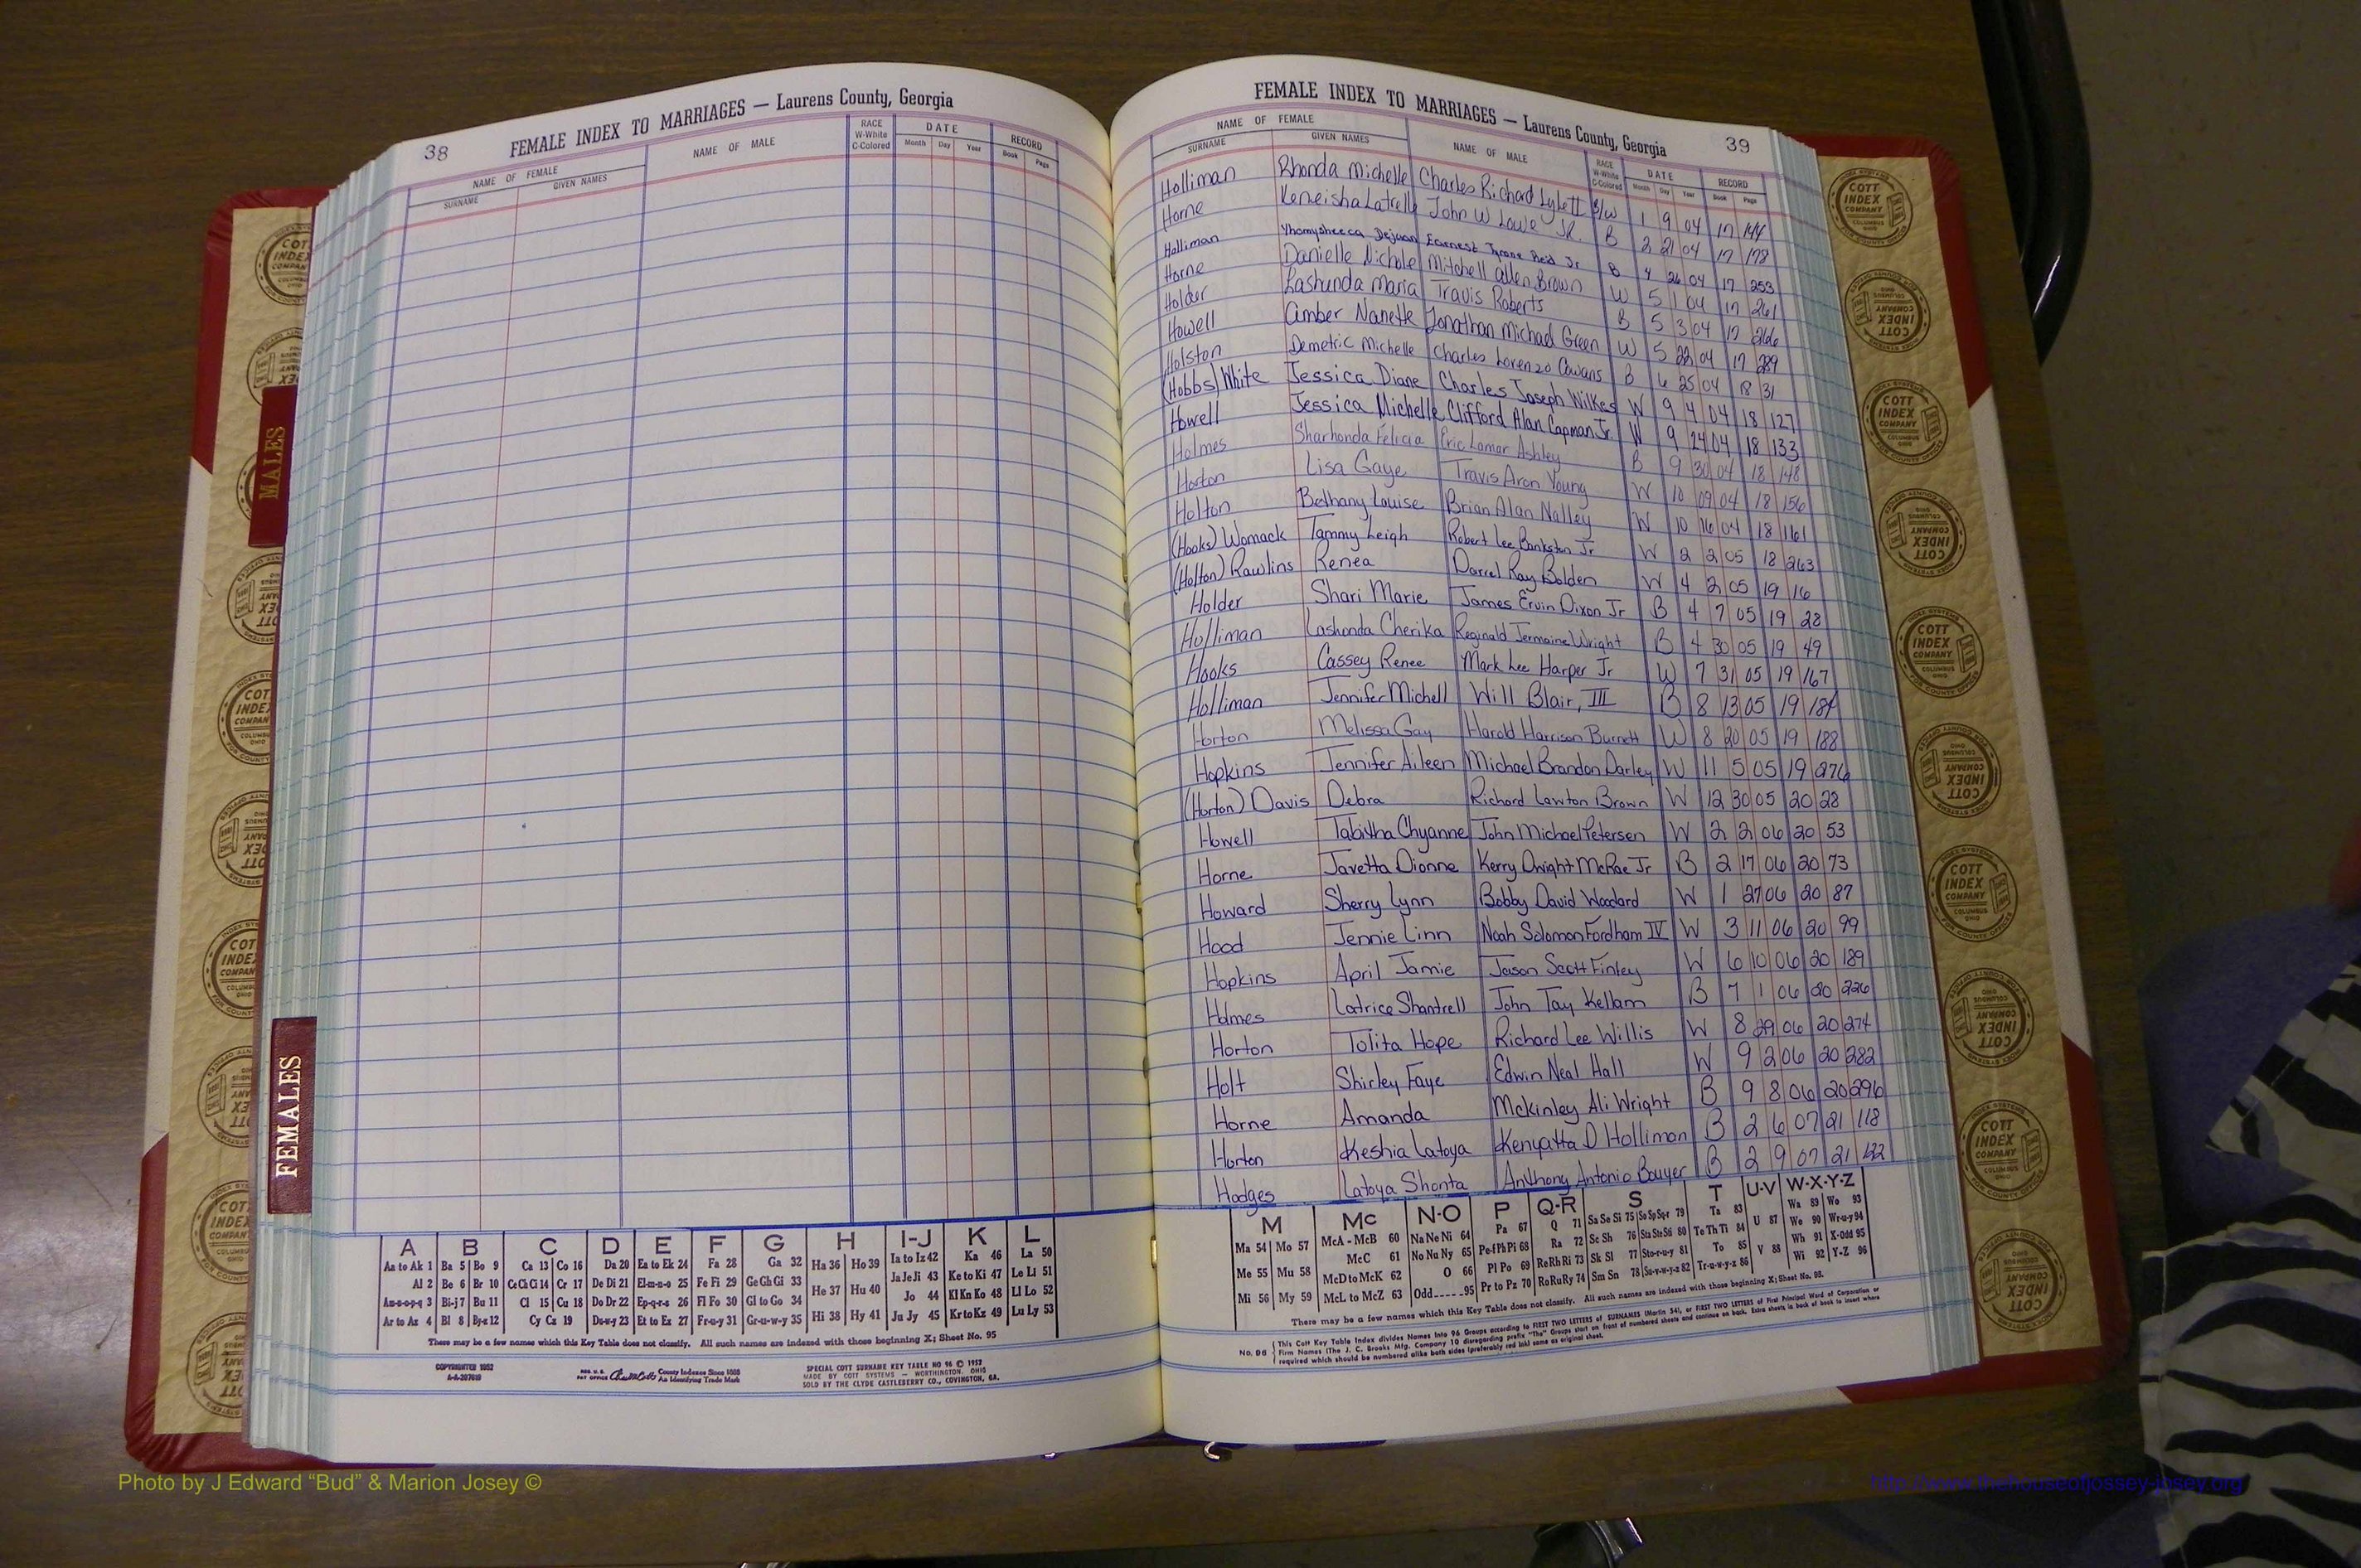 38 FEMALE INDEX TO MARRIAGES — Laurens County, Georgia
NAME OF FEMALE NAME OF MALE RACE W-White C-Colored DATE RECORD
SURNAME GIVEN NAMES Month Day Year Book Page
MALES
FEMALES
A B C D E F G H I-J K L
Aa to Ak 1 Ba 5 Bo 9 Ca 13 Co 16 Da 20 Ea to Ek 24 Fa 28 Ga 32 Ha 36 Ho 39 Ia to Iz 42 Ka 46 La 50
Al 2 Be 6 Br 10 Ce Ch Ci 14 Cr 17 De Di 21 El-m-n-o 25 Fe Fi 29 Ge Gh Gi 33 He 37 Hu 40 Ja Je Ji 43 Ke to Ki 47 Le Li 51
Am-n-o-p-q 3 Bi-j 7 Bu 11 Cl 15 Cu 18 Do Dr 22 Ep-q-r-s 26 Fl Fo 30 Gl to Go 34 Hi 38 Hy 41 Jo 44 Kl Kn Ko 48 Ll Lo 52
Ar to Az 4 Bl 8 By-z 12 Cy Cz 19 Du-w-y 23 Et to Ez 27 Fr-u-y 31 Gr-u-w-y 35 Ju Jy 45 Kr to Kz 49 Lu Ly 53
There may be a few names which this Key Table does not classify. All such names are indexed with those beginning X; Sheet No. 95
COPYRIGHTED 1952
County Indexes Since 1888
An Identifying Trade Mark
SPECIAL COTT SURNAME KEY TABLE NO 96 © 1957
MADE BY COTT SYSTEMS — WORTHINGTON, OHIO
SOLD BY THE CLYDE CASTLEBERRY CO., COVINGTON, GA.
FEMALE INDEX TO MARRIAGES — Laurens County, Georgia 39
NAME OF FEMALE NAME OF MALE RACE W-White C-Colored DATE RECORD
SURNAME GIVEN NAMES Month Day Year Book Page
Holliman Rhonda Michelle Charles Richard B/W 1 9 04 17 144
Horne Keneisha Latrelle John W Lowe Jr. B 2 21 04 17 178
Holliman Dejuan Earnest Tyrone Reid Jr B 4 26 04 17 253
Horne Danielle Nichole Mitchell Allen Brown W 5 1 04 17 261
Holder Lashunda Maria Travis Roberts B 5 3 04 17 266
Howell Amber Nanette Jonathan Michael Green W 5 22 04 17 289
Holston Demetric Michelle Charles Lorenzo Cowans B 6 25 04 18 31
(Hobbs) White Jessica Diane Charles Joseph Wilkes W 9 4 04 18 127
Howell Jessica Michelle Clifford Alan Capman Jr. W 9 24 04 18 133
Holmes Sharhonda Felicia Eric Lamar Ashley B 9 30 04 18 148
Horton Lisa Gaye Travis Aron Young W 10 09 04 18 156
Holton Bethany Louise Brian Alan Nalley W 10 16 04 18 161
(Hooks) Womack Tammy Leigh Robert Lee Bankston Jr W 2 2 05 18 263
(Holton) Rawlins Renea Darrel Ray Bolden W 4 2 05 19 16
Holder Shari Marie James Ervin Dixon Jr B 4 7 05 19 28
Holliman Lashonda Cherika Reginald Jermaine Wright B 4 30 05 19 49
Hooks Cassey Renee Mark Lee Harper Jr W 7 31 05 19 167
Holliman Jennifer Michell Will Blair, III B 8 13 05 19 184
Horton Melissa Gay Harold Harrison Burnett W 8 20 05 19 188
Hopkins Jennifer Aileen Michael Brandon Darley W 11 5 05 19 276
(Horton) Davis Debra Richard Lawton Brown W 12 30 05 20 28
Howell Tabitha Chyanne John Michael Petersen W 2 2 06 20 53
Horne Javetta Dionne Kerry Dwight McRae Jr B 2 17 06 20 73
Howard Sherry Lynn Bobby David Woodard W 1 27 06 20 87
Hood Jennie Linn Noah Solomon Fordham IV W 3 11 06 20 99
Hopkins April Jamie Jason Scott Finley W 6 10 06 20 189
Holmes Latrice Shantrell John Tay Kellam B 7 1 06 20 226
Horton Tolita Hope Richard Lee Willis W 8 29 06 20 274
Holt Shirley Faye Edwin Neal Hall W 9 2 06 20 282
Horne Amanda Mckinley Ali Wright B 9 8 06 20 296
Horton Keshia Latoya Kenyatta D Holliman B 2 6 07 21 118
Hodges Latoya Shonta Anthony Antonio Bouyer B 2 9 07 21 122
M Mc N-O P Q-R S T U-V W-X-Y-Z
Ma 54 Mo 57 McA - McB 60 Na Ne Ni 64 Pa 67 Q 71 Sa Se Si 75 So Sp Sq-r 79 Ta 83 U 87 Wa 89 Wo 93
Me 55 Mu 58 McC 61 No Nu Ny 65 Pe-f Ph Pi 68 Ra 72 Sc Sh 76 Sta Ste Sti 80 Te Th Ti 84 V 88 We 90 Wr-u-y 94
Mi 56 My 59 McD to McK 62 O 66 Pl Po 69 Re Rh Ri 73 Sk Sl 77 Sto-r-u-y 81 To 85 Wh 91 X-Odd 95
McL to McZ 63 Odd-----95 Pr to Pz 70 Ro Ru Ry 74 Sm Sn 78 Su-v-w-y-z 82 Tr-u-w-y-z 86 Wi 92 Y-Z 96
There may be a few names which this Key Table does not classify. All such names are indexed with those beginning X; Sheet No. 95.
No. 96 This Cott Key Table Index divides Names into 96 Groups according to FIRST TWO LETTERS of SURNAMES (Martin 54), or FIRST TWO LETTERS of First Principal Word of Corporation or
Firm Names (The J. C. Brooks Mfg. Company 10 disregarding prefix "The" Groups start on front of numbered sheets and continue on back. Extra sheets in back of book to insert where
required which should be numbered alike both sides (preferably red ink) same as original sheet.
COTT INDEX COMPANY COLUMBUS OHIO
INDEX SYSTEMS FOR COUNTY OFFICES
Photo by J Edward “Bud” & Marion Josey ©
http://www.thehouseofjossey-josey.org